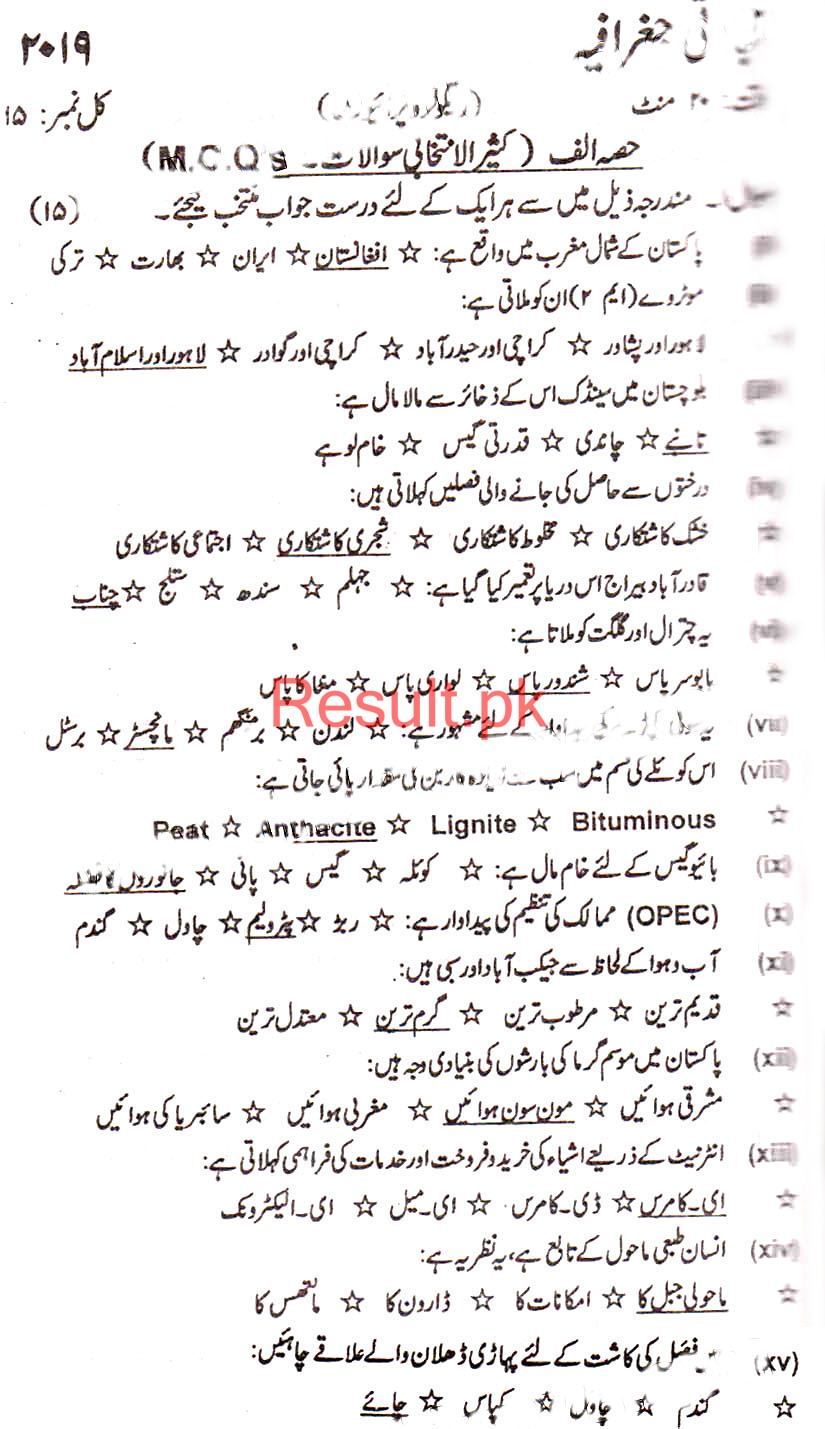 جغرافیہ ۲۰۱۹
۲۰ منٹ کل نمبر: ۱۵
حصہ الف (کثیر الانتخابی سوالات۔ M.C.Q's)
مندرجہ ذیل میں سے ہر ایک کے لئے درست جواب منتخب کیجئے۔ (۱۵)
پاکستان کے شمال مغرب میں واقع ہے: ☆ افغانستان ☆ ایران ☆ بھارت ☆ ترکی
موٹر وے (ایم ۲) ان کو ملاتی ہے:
لاہور اور پشاور ☆ کراچی اور حیدر آباد ☆ کراچی اور گوادر ☆ لاہور اور اسلام آباد
بلوچستان میں سینڈک اس کے ذخائر سے مالا مال ہے:
☆ تانبے ☆ چاندی ☆ قدرتی گیس ☆ خام لوہے
درختوں سے حاصل کی جانے والی فصلیں کہلاتی ہیں:
☆ خشک کاشتکاری ☆ مخلوط کاشتکاری ☆ شجری کاشتکاری ☆ اجتماعی کاشتکاری
قادر آباد بیراج اس دریا پر تعمیر کیا گیا ہے: ☆ جہلم ☆ سندھ ☆ ستلج ☆ چناب
(vi) یہ چترال اور گلگت کو ملاتا ہے:
☆ بابوسر پاس ☆ شندور پاس ☆ لواری پاس ☆ منٹاکا پاس
Result.pk
(vii) یہ کے لئے مشہور ہے: ☆ لندن ☆ برمنگھم ☆ مانچسٹر ☆ برسٹل
(viii) اس کوئلے کی قسم میں سب سے کی مقدار پائی جاتی ہے:
☆ Bituminous ☆ Lignite ☆ Anthacite ☆ Peat
(ix) بائیو گیس کے لئے خام مال ہے: ☆ کوئلہ ☆ گیس ☆ پانی ☆ جانوروں کا فضلہ
(x) (OPEC) ممالک کی تنظیم کی پیداوار ہے: ☆ ربڑ ☆ پٹرولیم ☆ چاول ☆ گندم
(xi) آب و ہوا کے لحاظ سے جیکب آباد اور سبی ہیں:
☆ قدیم ترین ☆ مرطوب ترین ☆ گرم ترین ☆ معتدل ترین
(xii) پاکستان میں موسم گرما کی بارشوں کی بنیادی وجہ ہیں:
☆ مشرقی ہوائیں ☆ مون سون ہوائیں ☆ مغربی ہوائیں ☆ سائبریا کی ہوائیں
(xiii) انٹرنیٹ کے ذریعے اشیاء کی خرید و فروخت اور خدمات کی فراہمی کہلاتی ہے:
☆ ای۔کامرس ☆ ڈی۔کامرس ☆ ای۔میل ☆ ای۔الیکٹرونک
(xiv) انسان طبعی ماحول کے تابع ہے، یہ نظریہ ہے:
☆ ماحولی جبل کا ☆ امکانات کا ☆ ڈارون کا ☆ مالتھس کا
(xv) فصل کی کاشت کے لئے پہاڑی ڈھلان والے علاقے چاہئیں:
☆ گندم ☆ چاول ☆ کپاس ☆ چائے